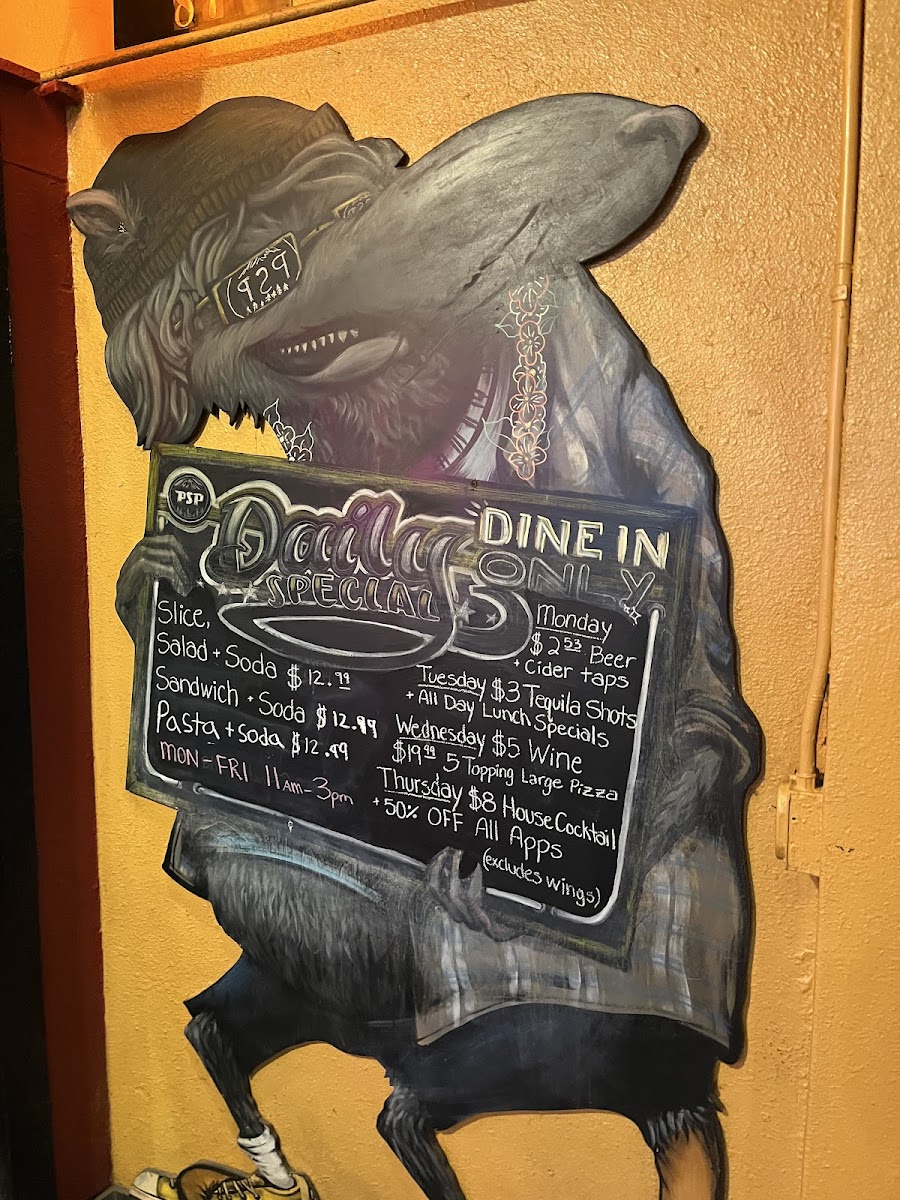 PSP
PSP
Daily
SPECIALS
DINE IN
ONLY
Slice,
Salad + Soda $12.99
Sandwich + Soda $12.99
Pasta + soda $12.99
MON-FRI 11am-3pm
Monday
$2.53 Beer
+ Cider taps
Tuesday $3 Tequila Shots
+ All Day Lunch Specials
Wednesday $5 Wine
$19.99 5 Topping Large Pizza
Thursday $8 House Cocktail
+ 50% OFF All Apps
(excludes wings)